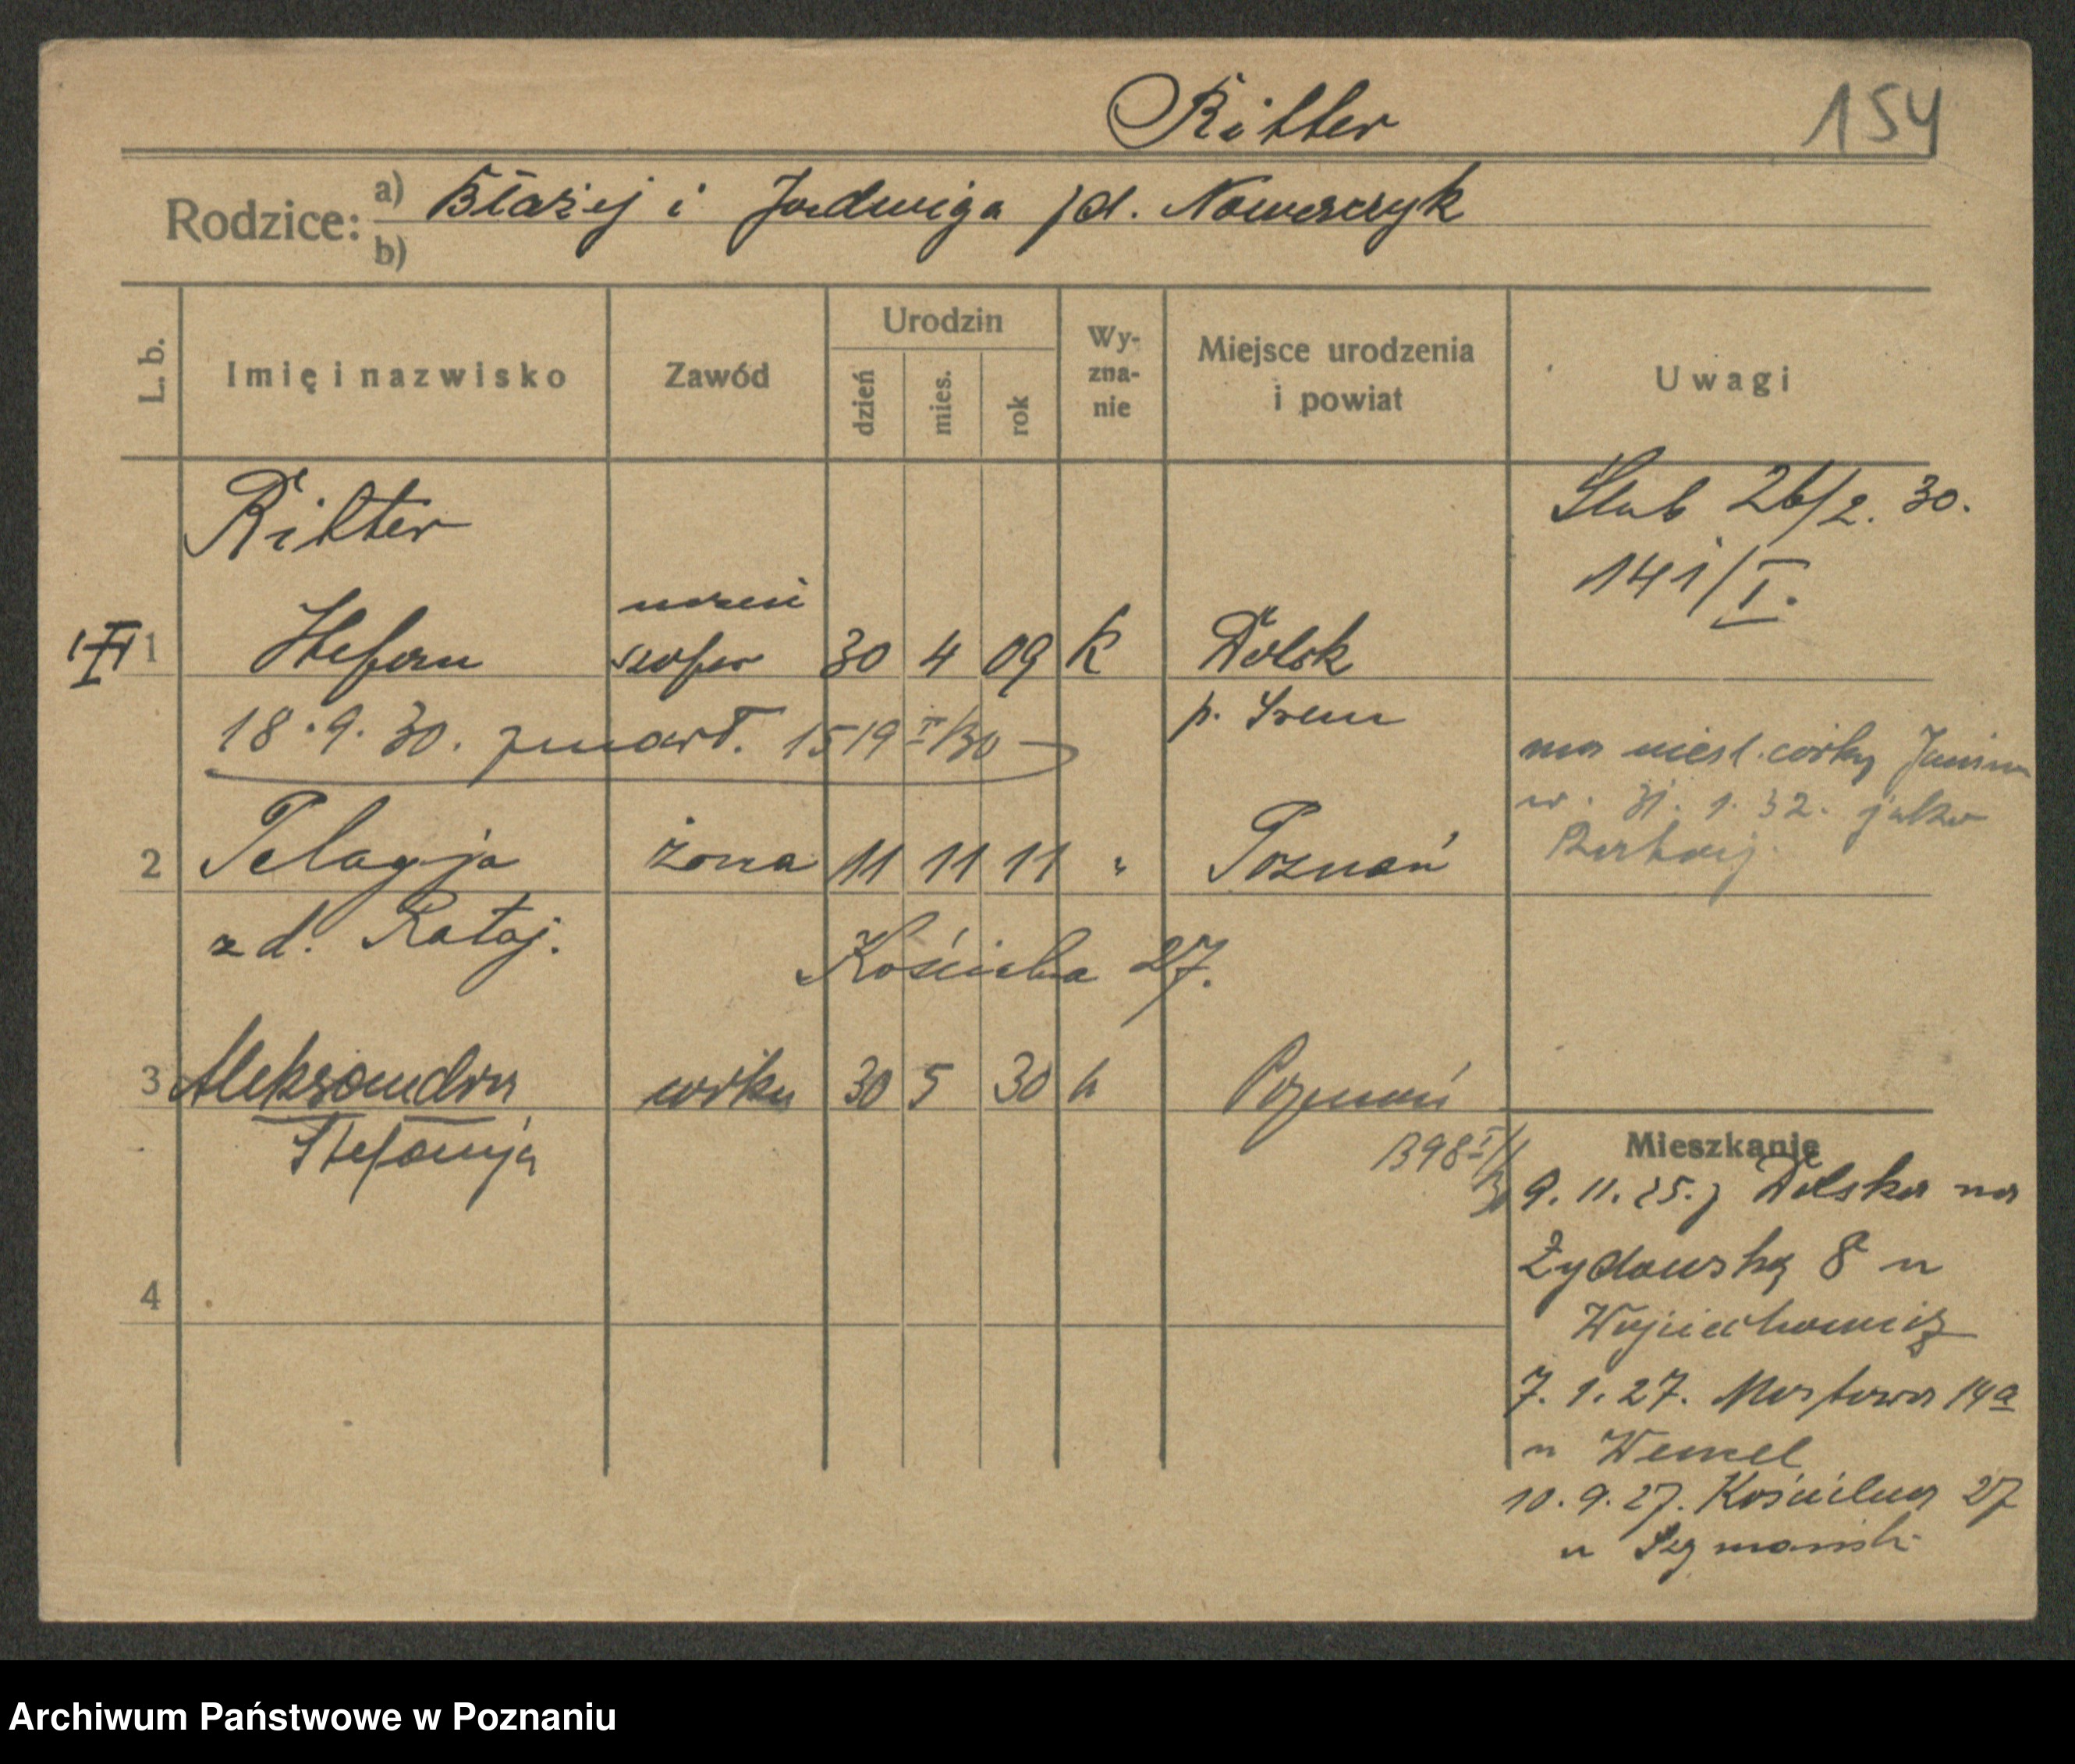 Ritter
154
Rodzice: a) Błażej i Jadwiga zd. Nowaczyk
b)
L. b.
Imię i nazwisko
Zawód
Urodzin
dzień
mies.
rok
Wy-
zna-
nie
Miejsce urodzenia
i powiat
Uwagi
Ritter
Ślub 26/2. 30.
141/I.
uczeń
1 Stefan szofer 30 4 09 k Dolsk
p. Śrem
18.9.30. zmarł. 1519 II/30
ma nieśl. córkę Janina
w. 31. 1. 32. jako
2 Pelagja żona 11 11 11 " Poznań
zd. Rataj.
Kościelna 27.
3 Aleksandra córka 30 5 30 k Poznań
Stefanja
1398 I/30
Mieszkanie
9. 11. 25. z Dolska na
Żydowską 8 u
Wojciechowicz
7. 1. 27. Mostowa 14a
u Wenzel
10. 9. 27. Kościelna 27
u
4
Archiwum Państwowe w Poznaniu